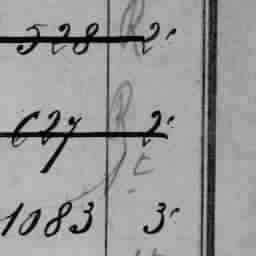 528 2.
627 2.
1083 3.